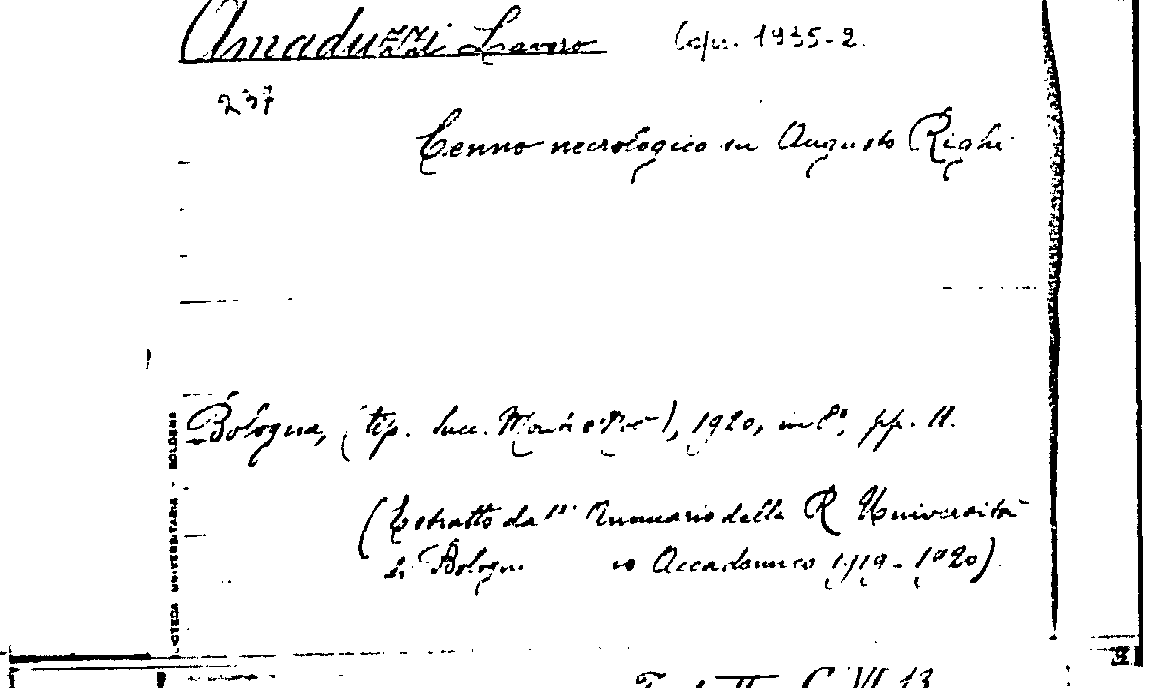 Amaduzzi Lavoro Cop. 1935-2.
237
Cenno necrologico su Augusto Righi
Bologna, (tip. Succ. Monti), 1920, in 8°, pp. 11.
(Estratto dall' Annuario della R Università
di Bologn o Accademico 1919-1920)
IOTECA UNIVERSITARIA - BOLOGNA
C. VI 13